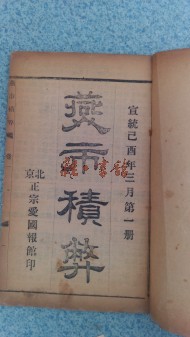 宣統己酉年三月第一册
燕市積弊
北京正宗愛國報館印